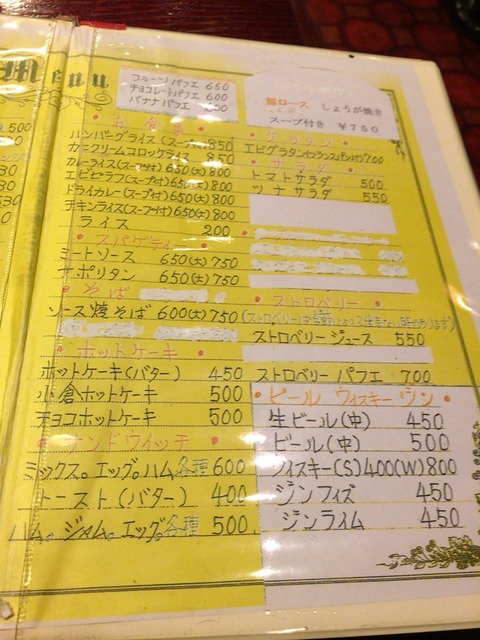 Menu
フルーツパフェ 650
チョコレートパフェ 600
バナナパフェ 600
豚ロース しょうが焼き
スープ付き ¥750
お食事
ハンバーグライス(スープ付) 850
カニクリームコロッケライス 850
カレーライス(スープ付) 650(大)800
エビピラフ(スープ付) 650(大)800
ドライカレー(スープ付) 650(大)800
チキンライス(スープ付) 650(大)800
ライス 200
スパゲティ
ミートソース 650(大)750
ナポリタン 650(大)750
そば
ソース焼そば 600(大)750
ホットケーキ
ホットケーキ(バター) 450
小倉ホットケーキ 500
チョコホットケーキ 500
サンドウィッチ
ミックス。エッグ。ハム各種 600
トースト(バター) 400
ハム。ジャム。エッグ。各種 500
グラタン
エビグラタン(フランスパン付) 700
サラダ
トマトサラダ 500
ツナサラダ 550
ストロベリー
(ストロベリーは季節によって出来ない時があります)
ストロベリージュース 550
ストロベリーパフェ 700
ビール ウィスキー ジン
生ビール(中) 450
ビール(中) 500
ウイスキー(S)400(W)800
ジンフィズ 450
ジンライム 450